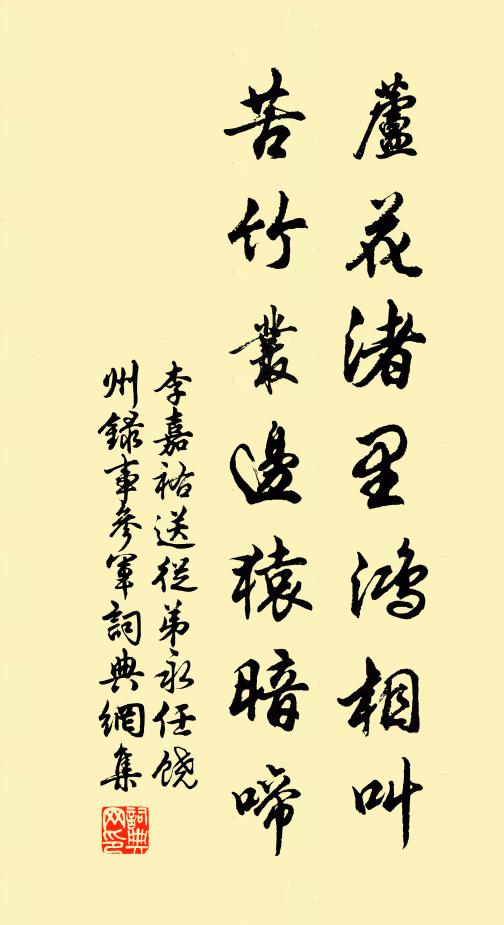 蘆花渚里鴻相叫
苦竹叢邊猿暗啼
李嘉祐送從弟永任饒
州錄事參軍詞典網集
詞典網印